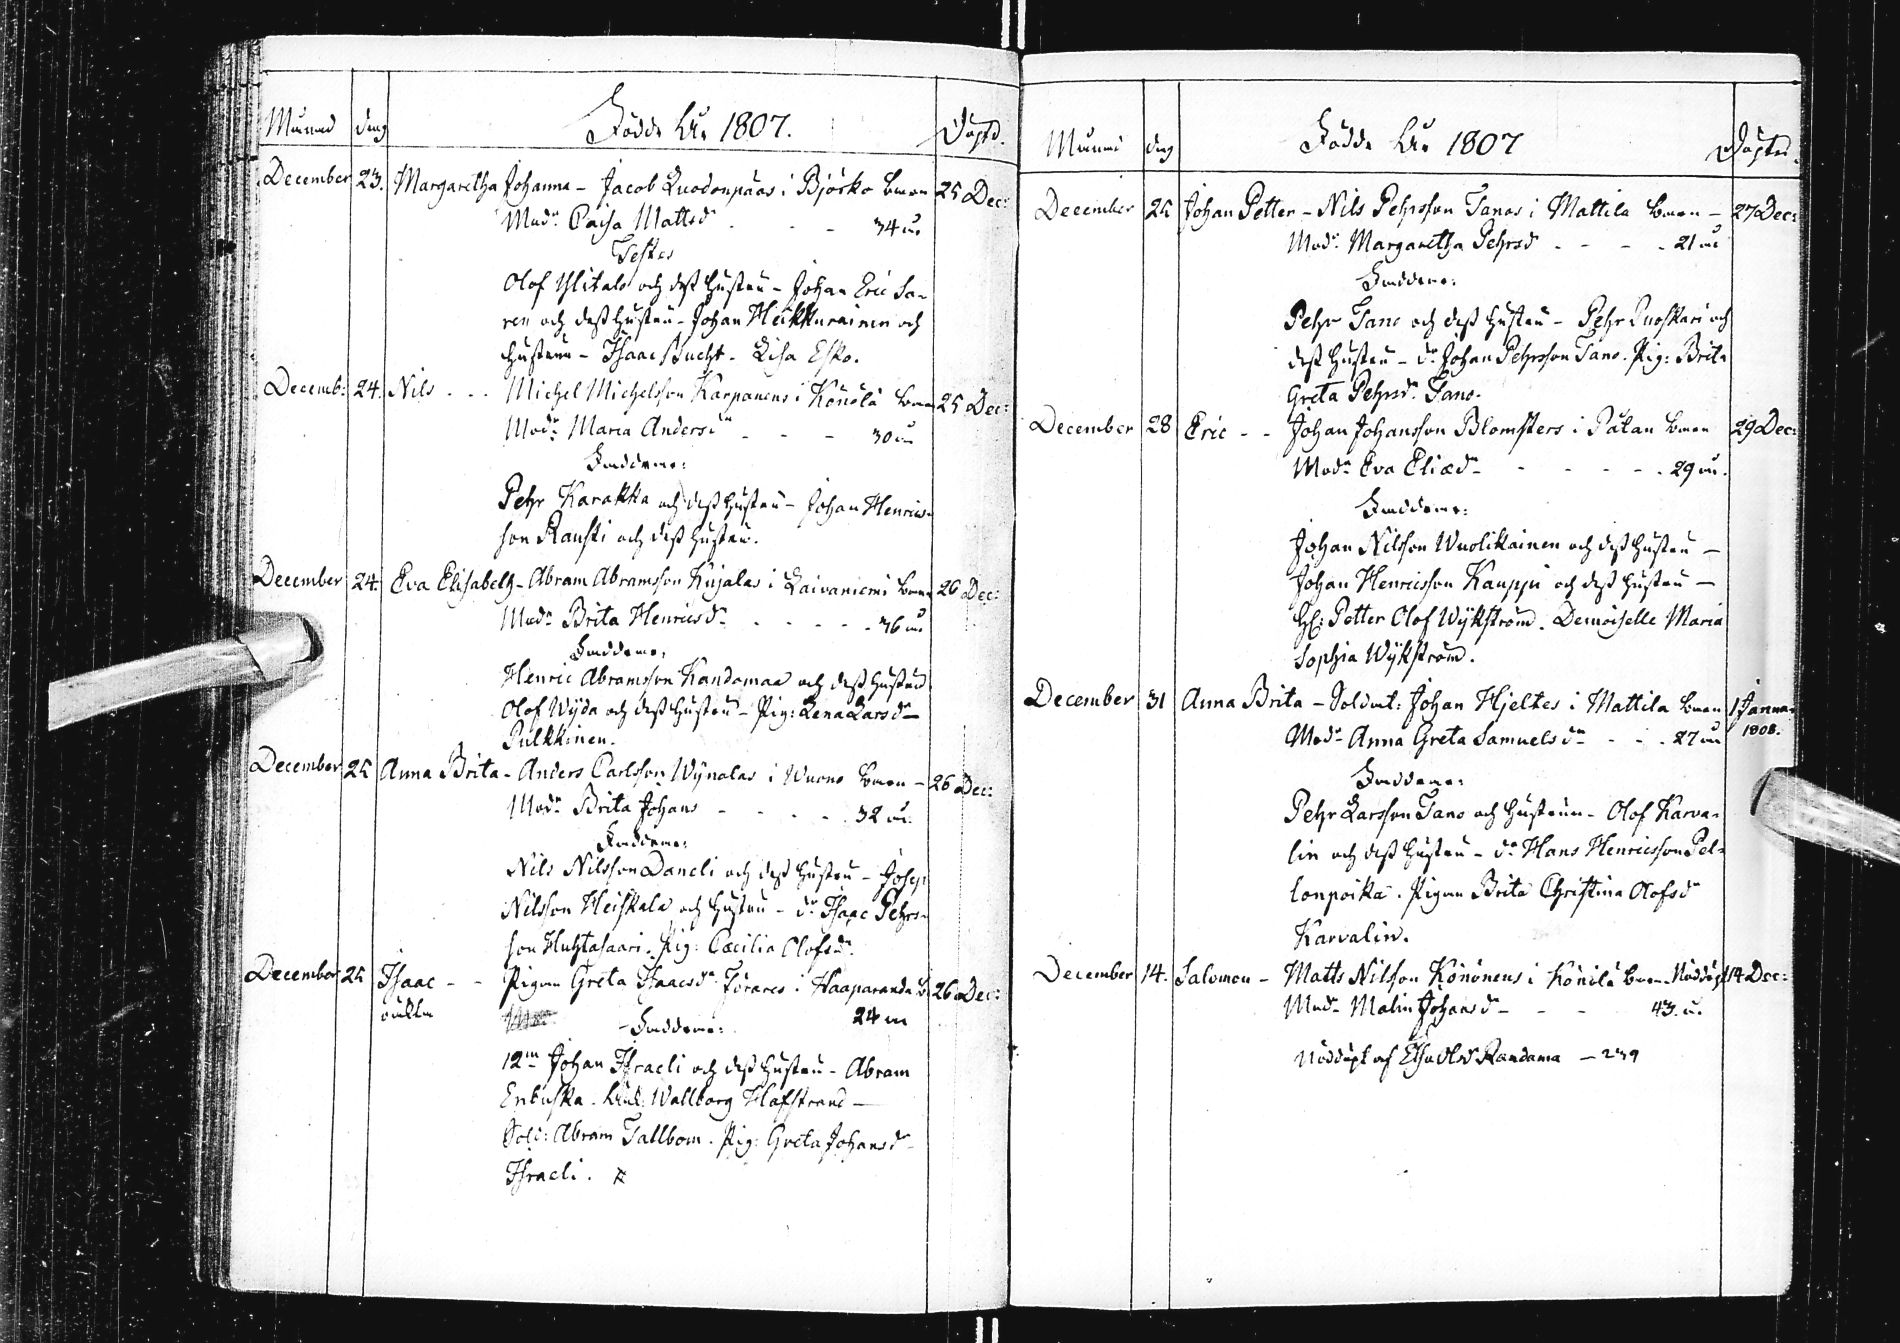 Månad dag Födde År 1807. Döpte.
December 23. Margaretha Johanna - Jacob Luodonpääs i Björkö barn 25 Dec:
Modr: Caisa Mattsdr - - 34 år
Testes
Olof Ylitalo och dess hustru - Johan Eric La-
ren och dess hustru - Johan Heikkurainen och
hustrun - Isaac Bucht - Lisa Esko.
Decemb: 24. Nils - - Michel Michelsson Karpanens i Könölä barn 25 Dec:
Modr: Maria Andersdr - - - 30 år
Faddrar:
Pehr Karakka och dess hustru - Johan Henrics-
son Rauski och dess hustru.
December 24. Eva Elisabeth - Abram Abramsson Kujalas i Laivaniemi barn 26 Dec:
Modr Brita Henricsdr - - - - - 36 år
Faddrar:
Henric Abramsson Kandamaa och dess hustru
Olof Wyda och dess hustru - Pig: Lena Larsdr -
Pulkkinen.
December 25 Anna Brita - Anders Carlsson Wynalas i Wuono barn - 26 Dec:
Modr Brita Johans - - - - - 32 år.
Faddrar:
Nils Nilsson Daneli och dess hustru - Josep
Nilsson Heiskala och hustru - dr. Isaac Pehrs-
son Huhtasaari. Pig: Cæcilia Olofsdr.
December 25 Isaac - - Pigan Greta Isaacsdr Förares i Haaparanda b: 26 Dec:
oäkta Faddrar: 24 år
12mn Johan Israeli och dess hustru - Abram
Enbuska. Wallborg Hafstrand -
Sold: Abram Tallbom. Pig: Greta Johansdr
Israeli.
Månad dag Födde År 1807 Döpte.
December 25 Johan Petter - Nils Pehrsson Tanos i Mattila barn - 27 Dec:
Modr Margaretha Pehrsdr - - - - 21 år
Faddrar:
Pehr Tano och dess hustru - Pehr Puoskari och
dess hustru - dr. Johan Pehrsson Tano. Pig: Brita
Greta Pehrsdr Tano.
December 28 Eric - - Johan Johansson Blomsters i Pätan barn 29 Dec:
Modr Eva Eliædr - - - - - - 29 år.
Faddrar:
Johan Nilsson Wuolikainen och dess hustru -
Johan Henricsson Kauppi och dess hustru -
Hr: Petter Olof Wykström. Demoiselle Maria
Sophia Wykström.
December 31 Anna Brita - Soldat: Johan Hjeltes i Mattila barn 1 Janua:
Modr Anna Greta Samuelsdr - - - 27 år 1808.
Faddrar:
Pehr Larsson Tano och hustrun - Olof Karva-
lin och dess hustru - dr. Hans Henricsson Pel-
lonpoika. Pigan Brita Christina Olofsdr
Karvalin.
December 14. Salomon - Matts Nilsson Könönens i Könölä barn. Nöddöpt 14 Dec:
Modr Malin Johansdr - - - 43. år.
Nöddöpt af Elsa Olsdr Randama - 239